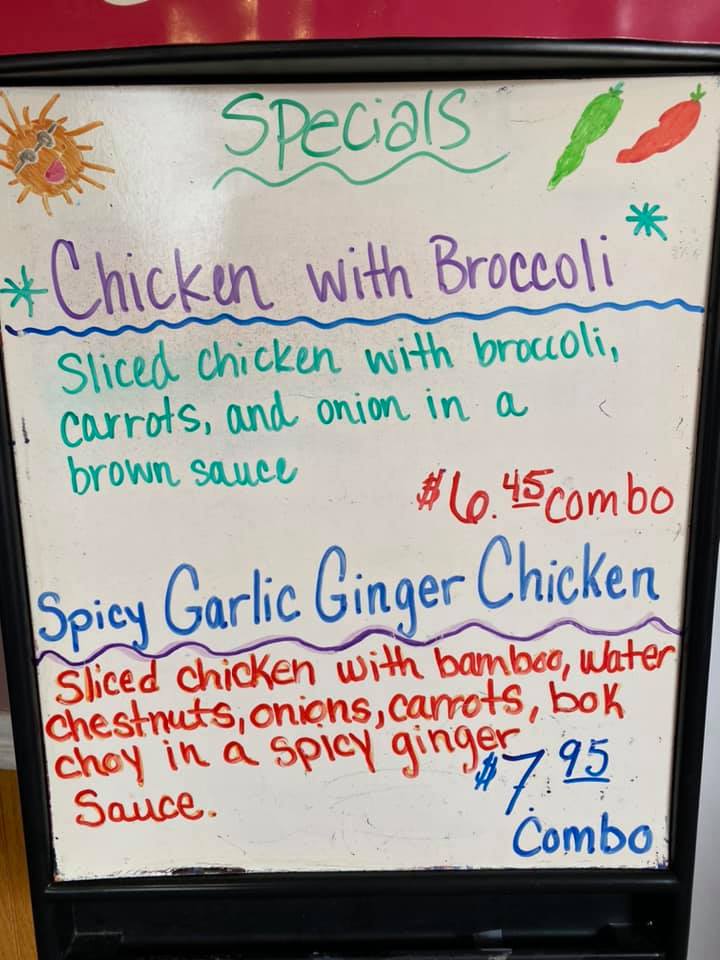 Specials
Chicken with Broccoli
Sliced chicken with broccoli,
carrots, and onion in a
brown sauce
$6.45 combo
Spicy Garlic Ginger Chicken
Sliced chicken with bamboo, water
chestnuts, onions, carrots, bok
choy in a spicy ginger
Sauce.
$7.95
Combo